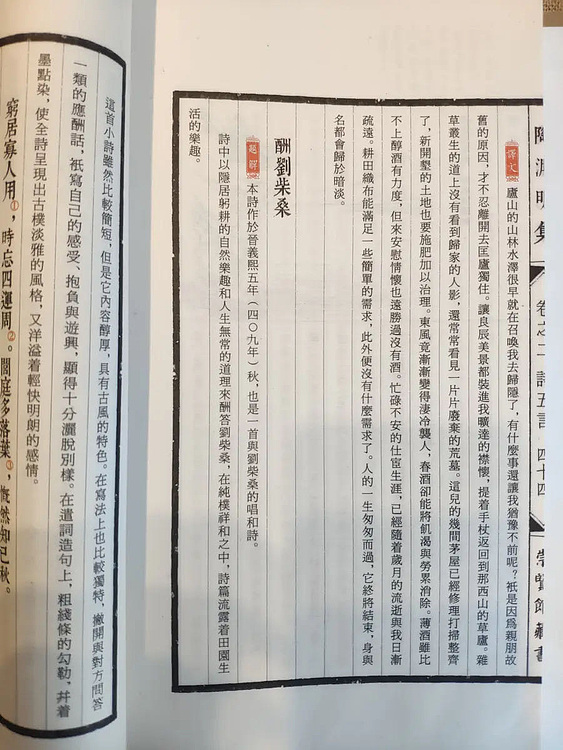 陶淵明集
卷之二
詩五言
四十四
崇賢館藏書
譯文
廬山的山林水澤很早就在召喚我去歸隱了，有什麼事還讓我猶豫不前呢？祇是因爲親朋故
舊的原因，才不忍離開去匡廬獨住。讓良辰美景都裝進我曠達的襟懷，提着手杖返回到那西山的草廬。雜
草叢生的道上沒有看到歸家的人影，還常常看見一片片廢棄的荒墓。這兒的幾間茅屋已經修理打掃整齊
了，新開墾的土地也要施肥加以治理。東風竟漸漸變得淒冷襲人，春酒卻能將飢渴與勞累消除。薄酒雖比
不上醇酒有力度，但來安慰情懷也遠勝過沒有酒。忙碌不安的仕宦生涯，已經隨着歲月的流逝與我日漸
疏遠。耕田織布能滿足一些簡單的需求，此外便沒有什麼需求了。人的一生匆匆而過，它終將結束，身與
名都會歸於暗淡。
酬劉柴桑
題解
本詩作於晉義熙五年（四〇九年）秋，也是一首與劉柴桑的唱和詩。
詩中以隱居躬耕的自然樂趣和人生無常的道理來酬答劉柴桑，在純樸祥和之中，詩篇流露着田園生
活的樂趣。
這首小詩雖然比較簡短，但是它內容醇厚，具有古風的特色。在寫法上也比較獨特，撇開與對方問答
一類的應酬話，祇寫自己的感受、抱負與遊興，顯得十分灑脫別樣。在遣詞造句上，粗綫條的勾勒，幷着
墨點染，使全詩呈現出古樸淡雅的風格，又洋溢着輕快明朗的感情。
窮居寡人用①，時忘四運周②。閭庭多落葉③，慨然知已秋。